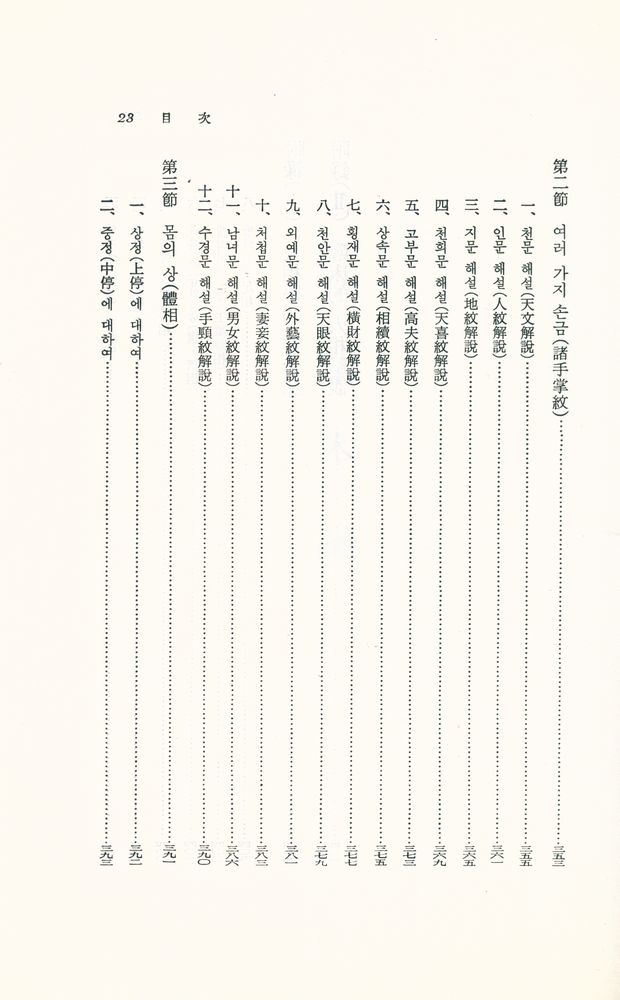 23 目 次
第二節 여러 가지 손금(諸手掌紋)……三五三
一、천문 해설(天文解說)……三五五
二、인문 해설(人紋解說)……三六一
三、지문 해설(地紋解說)……三六五
四、천희문 해설(天喜紋解說)……三六九
五、고부문 해설(高夫紋解說)……三七三
六、상속문 해설(相續紋解說)……三七五
七、횡재문 해설(橫財紋解說)……三七七
八、천안문 해설(天眼紋解說)……三七九
九、외예문 해설(外藝紋解說)……三八一
十、처첩문 해설(妻妾紋解說)……三八三
十一、남녀문 해설(男女紋解說)……三八六
十二、수경문 해설(手頸紋解說)……三九〇
第三節 몸의 상(體相)……三九一
一、상정(上停)에 대하여……三九二
二、중정(中停)에 대하여……三九三